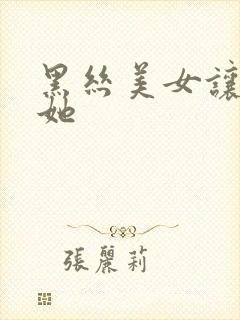 黑絲美女讓
她
張麗莉